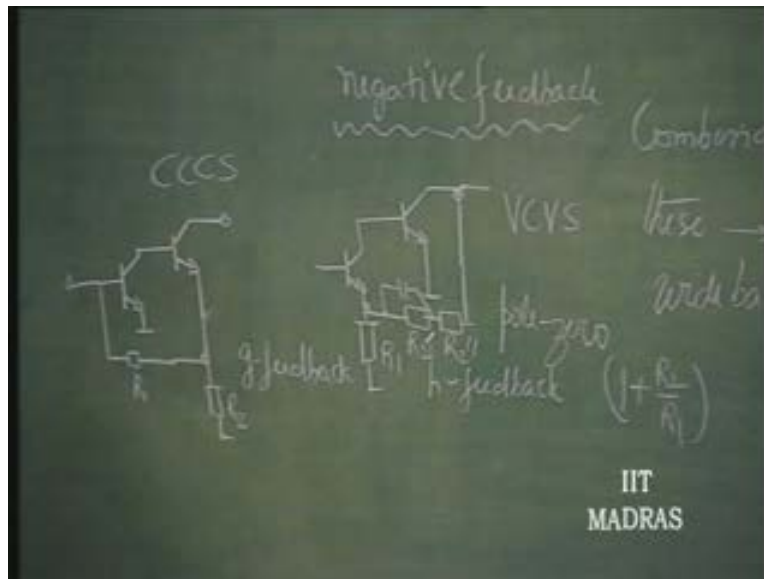 negative feedback
CCCS
VCVS
these →
R1
R2
g-feedback
R1
R2' R2''
pole-zero
h-feedback
(1+R2/R1)
IIT
MADRAS